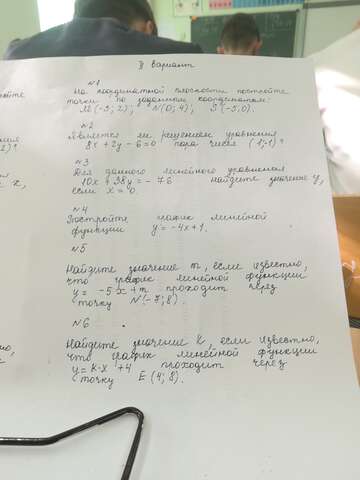 II вариант
№1
На координатной плоскости постройте
точки по заданным координатам:
M(-3; 2); N(0; 4); S(-5; 0).
№2
Является ли решением уравнения
8x + 2y - 6 = 0 пара чисел (1; -1)?
№3
Для данного линейного уравнения
10x + 38y = - 76 найдите значение y,
если x = 0.
№4
Постройте график линейной
функции y = -4x+1.
№5
Найдите значение m, если известно,
что график линейной функции
y = -5x + m проходит через
точку N(-7; 8).
№6
Найдите значение k, если известно,
что график линейной функции
y = k·x + 4 проходит через
точку E (4; 8).